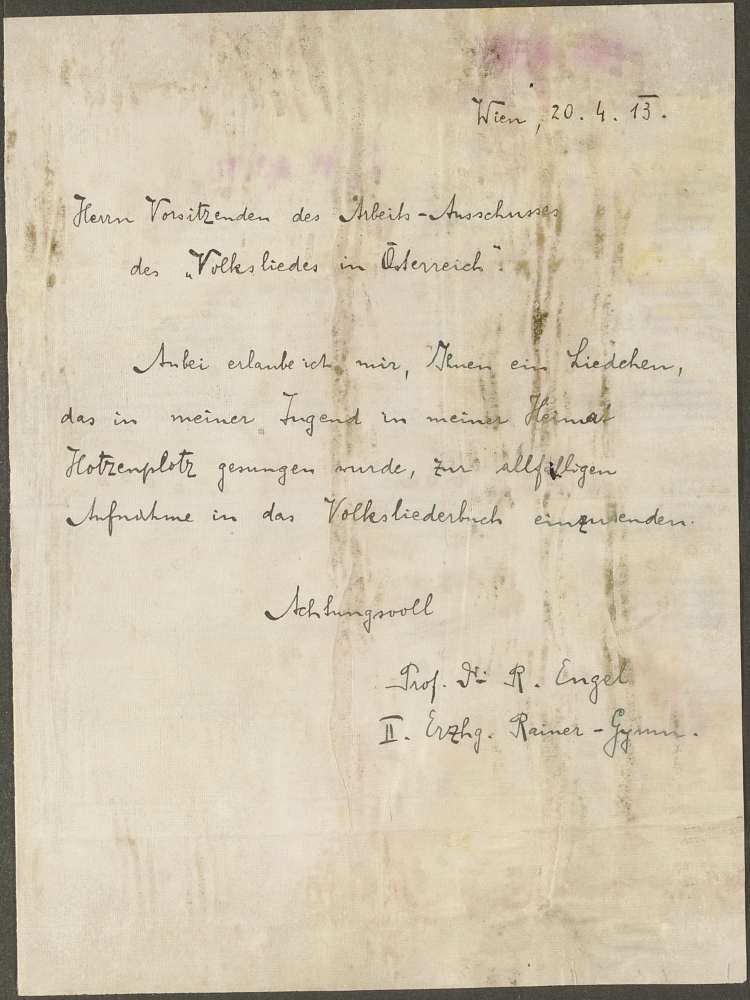 Wien, 20. 4. 13.
Herrn Vorsitzenden des Arbeits-Ausschusses
des „Volksliedes in Österreich“.
Anbei erlaube ich mir, Ihnen ein Liedchen,
das in meiner Jugend in meiner Heimat
Hotzenplotz gesungen wurde, zur allfälligen
Aufnahme in das Volksliederbuch einzusenden.
Achtungsvoll
Prof. Dr. R. Engel
II. Erzhg. Rainer-Gymn.